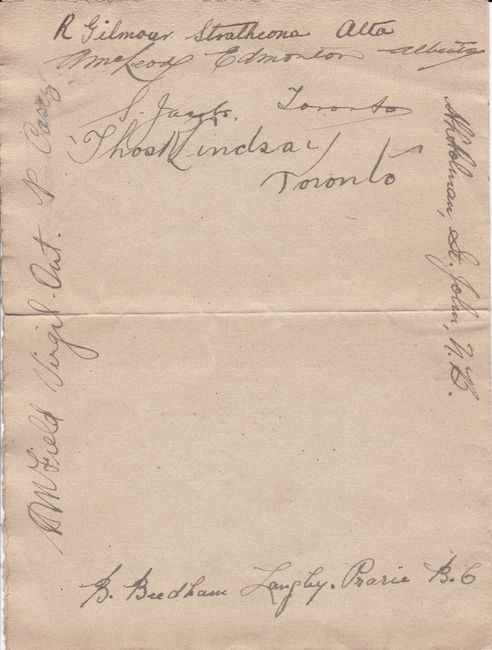 R Gilmour Strathcona Alta
A McLeod Edmonton Alberta
S. Jacobs. Toronto
Thos Lindsay
Toronto
Holman, St. John, N.B.
P Casey
M Field Virgil. Ont.
B. Beedham Langly. Prarie B.C